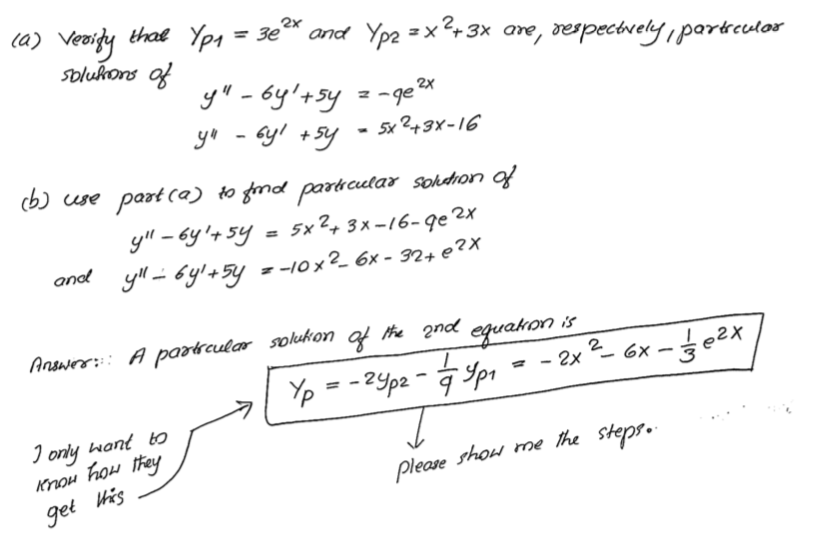 (a) Verify that Yp1 = 3e^2x and Yp2 = x^2+3x are, respectively, particular
solutions of
y" - 6y' + 5y = -9e^2x
y" - 6y' + 5y = 5x^2+3x-16
(b) use part(a) to find particular solution of
y" - 6y' + 5y = 5x^2+3x-16-9e^2x
and y" - 6y' + 5y = -10x^2-6x-32+e^2x
Answer::: A particular solution of the 2nd equation is
Yp = -2yp2 - 1/9 yp1 = -2x^2 - 6x - 1/3 e^2x
I only want to
know how they
get this
please show me the steps.